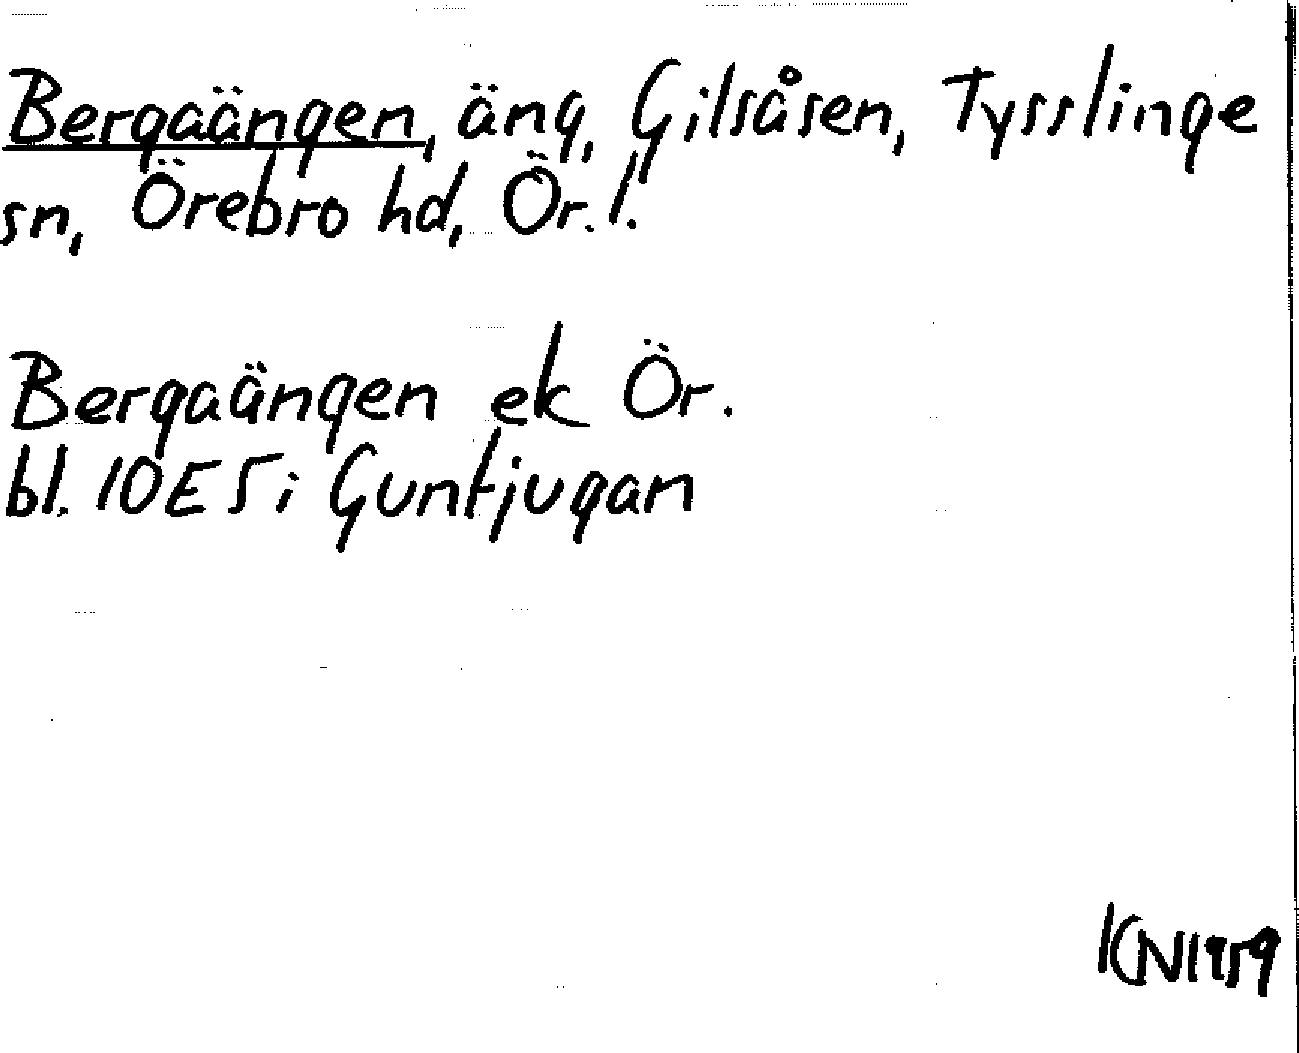 Bergaängen, äng, Gilsåsen, Tysslinge
sn, Örebro hd, Ör. l.
Bergaängen ek Ör.
bl. 10E5i Guntjugan
KN1959